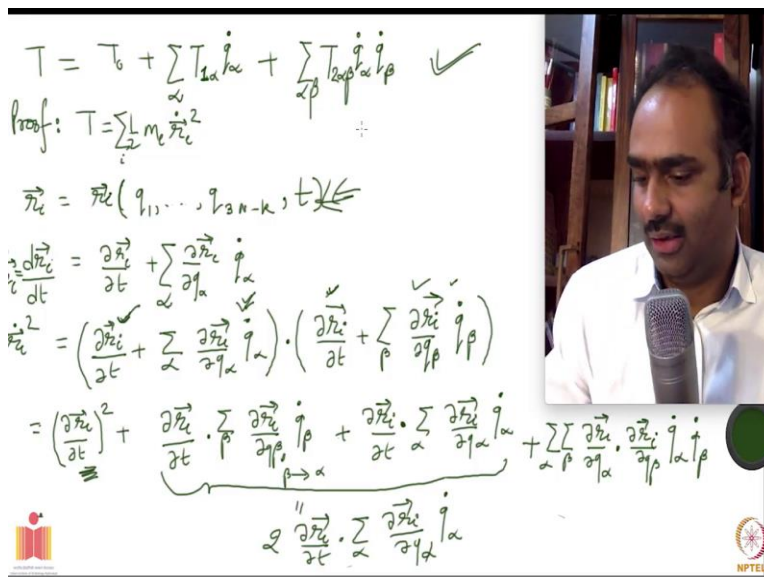 T = T₀ + ∑_α T_{1α} q̇_α + ∑_{αβ} T_{2αβ} q̇_α q̇_β ✓
Proof: T = ∑_i 1/2 m_i ṙ⃗_i²
r⃗_i = r⃗_i (q_1, ..., q_{3N-K}, t)
dr⃗_i/dt = ∂r⃗_i/∂t + ∑_α ∂r⃗_i/∂q_α q̇_α
ṙ⃗_i² = (∂r⃗_i/∂t + ∑_α ∂r⃗_i/∂q_α q̇_α) · (∂r⃗_i/∂t + ∑_β ∂r⃗_i/∂q_β q̇_β)
= (∂r⃗_i/∂t)² + ∂r⃗_i/∂t · ∑_β ∂r⃗_i/∂q_β q̇_β + ∂r⃗_i/∂t · ∑_α ∂r⃗_i/∂q_α q̇_α + ∑_α ∑_β ∂r⃗_i/∂q_α · ∂r⃗_i/∂q_β q̇_α q̇_β
β → α
"
2 ∂r⃗_i/∂t · ∑_α ∂r⃗_i/∂q_α q̇_α
NPTEL